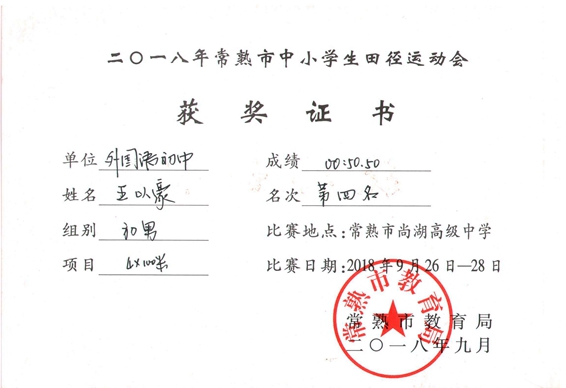 二〇一八年常熟市中小学生田径运动会
获奖证书
单位 外国语初中 成绩 00:50.50
姓名 王以豪 名次 第四名
组别 初男 比赛地点:常熟市尚湖高级中学
项目 4x100米 比赛日期:2018年9月26日—28日
常熟市教育局
常熟市教育局
二〇一八年九月